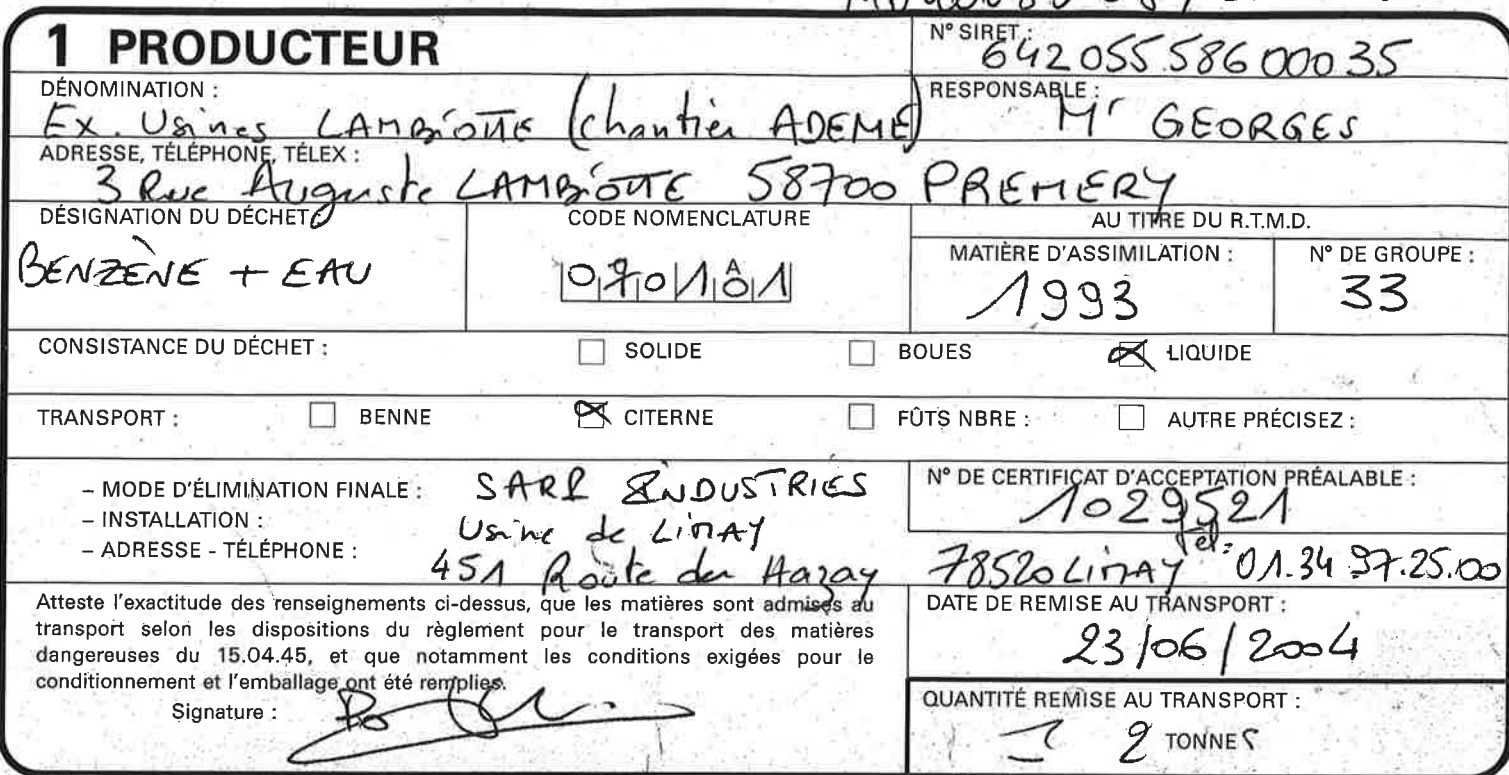 1 PRODUCTEUR
N° SIRET :
64205558600035
DÉNOMINATION :
Ex. Usines LAMBIOTTE (chantier ADEME)
RESPONSABLE :
Mr GEORGES
ADRESSE, TÉLÉPHONE, TÉLEX :
3 Rue Auguste LAMBIOTTE 58700 PREMERY
DÉSIGNATION DU DÉCHET
BENZÈNE + EAU
CODE NOMENCLATURE
070101
A
AU TITRE DU R.T.M.D.
MATIÈRE D'ASSIMILATION :
1993
N° DE GROUPE :
33
CONSISTANCE DU DÉCHET : SOLIDE BOUES LIQUIDE
TRANSPORT : BENNE CITERNE FÛTS NBRE : AUTRE PRÉCISEZ :
– MODE D'ÉLIMINATION FINALE : SARP INDUSTRIES
– INSTALLATION : Usine de LIMAY
– ADRESSE - TÉLÉPHONE : 451 Route du Hazay 78520 LIMAY Tel: 01.34.97.25.00
N° DE CERTIFICAT D'ACCEPTATION PRÉALABLE :
1029521
Atteste l'exactitude des renseignements ci-dessus, que les matières sont admises au
transport selon les dispositions du règlement pour le transport des matières
dangereuses du 15.04.45, et que notamment les conditions exigées pour le
conditionnement et l'emballage ont été remplies.
Signature :
DATE DE REMISE AU TRANSPORT :
23/06/2004
QUANTITÉ REMISE AU TRANSPORT :
2 TONNES